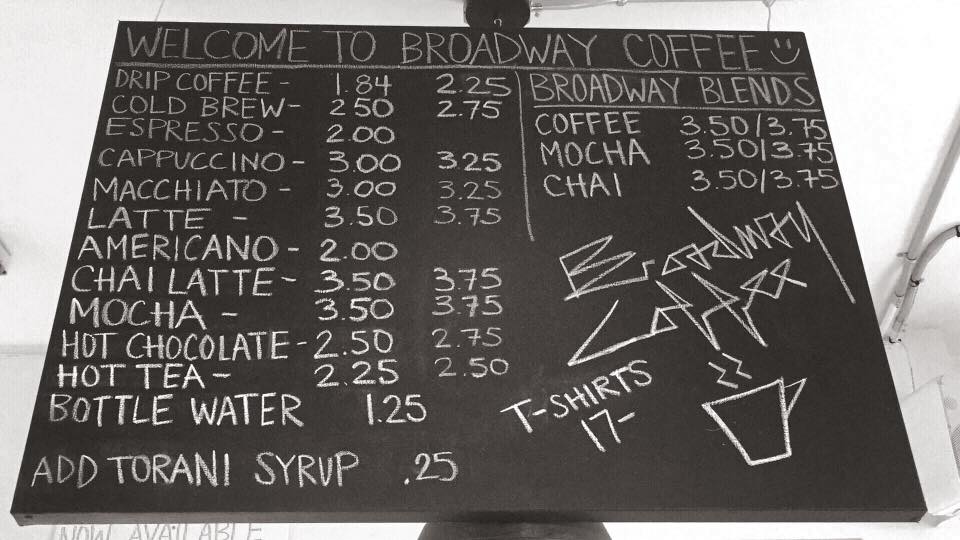 WELCOME TO BROADWAY COFFEE
DRIP COFFEE - 1.84 2.25
COLD BREW - 2.50 2.75
ESPRESSO - 2.00
CAPPUCCINO - 3.00 3.25
MACCHIATO - 3.00 3.25
LATTE - 3.50 3.75
AMERICANO - 2.00
CHAI LATTE - 3.50 3.75
MOCHA - 3.50 3.75
HOT CHOCOLATE - 2.50 2.75
HOT TEA - 2.25 2.50
BOTTLE WATER 1.25
ADD TORANI SYRUP .25
BROADWAY BLENDS
COFFEE 3.50/3.75
MOCHA 3.50/3.75
CHAI 3.50/3.75
Broadway
Coffee
T-SHIRTS
17-
NOW AVAILABLE